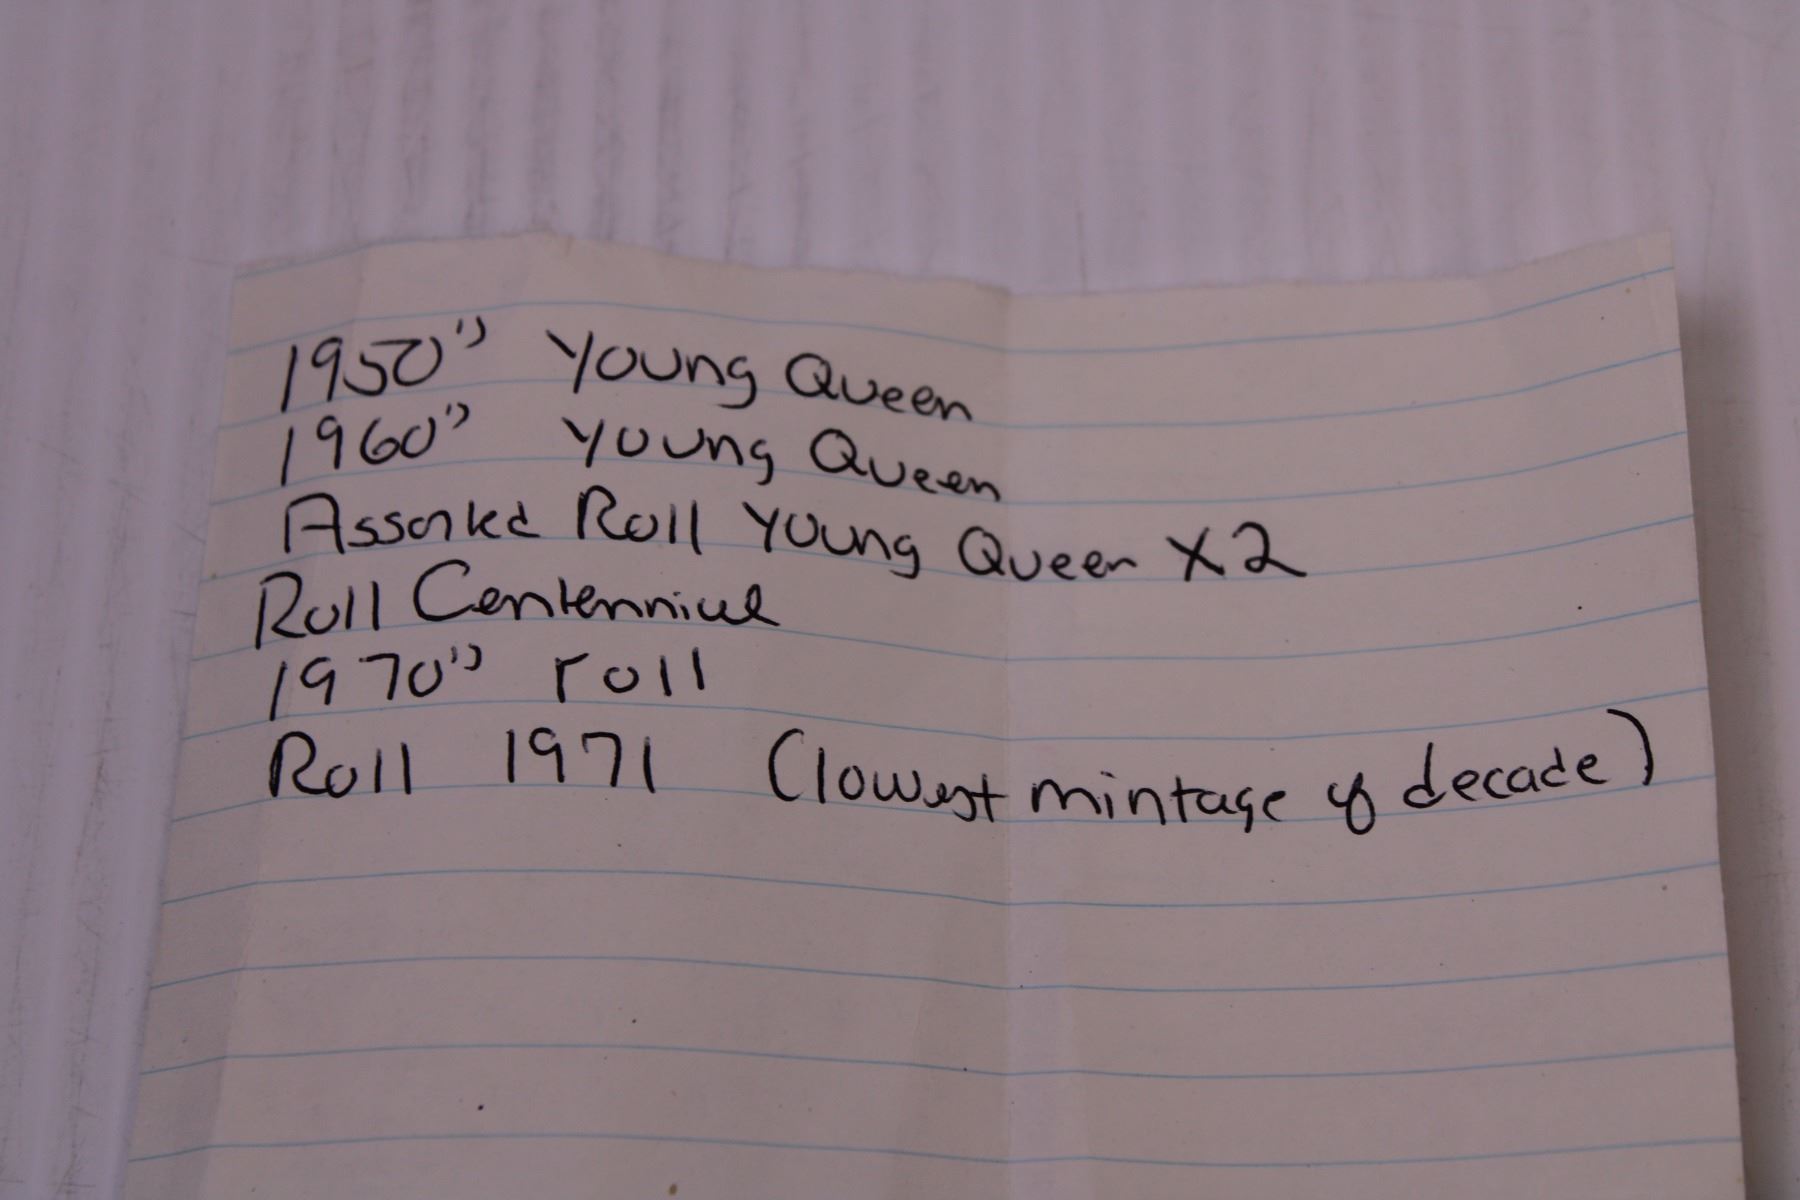 1950" Young Queen
1960" Young Queen
Assorted Roll Young Queen X2
Roll Centennial
1970" roll
Roll 1971 (lowest mintage of decade)